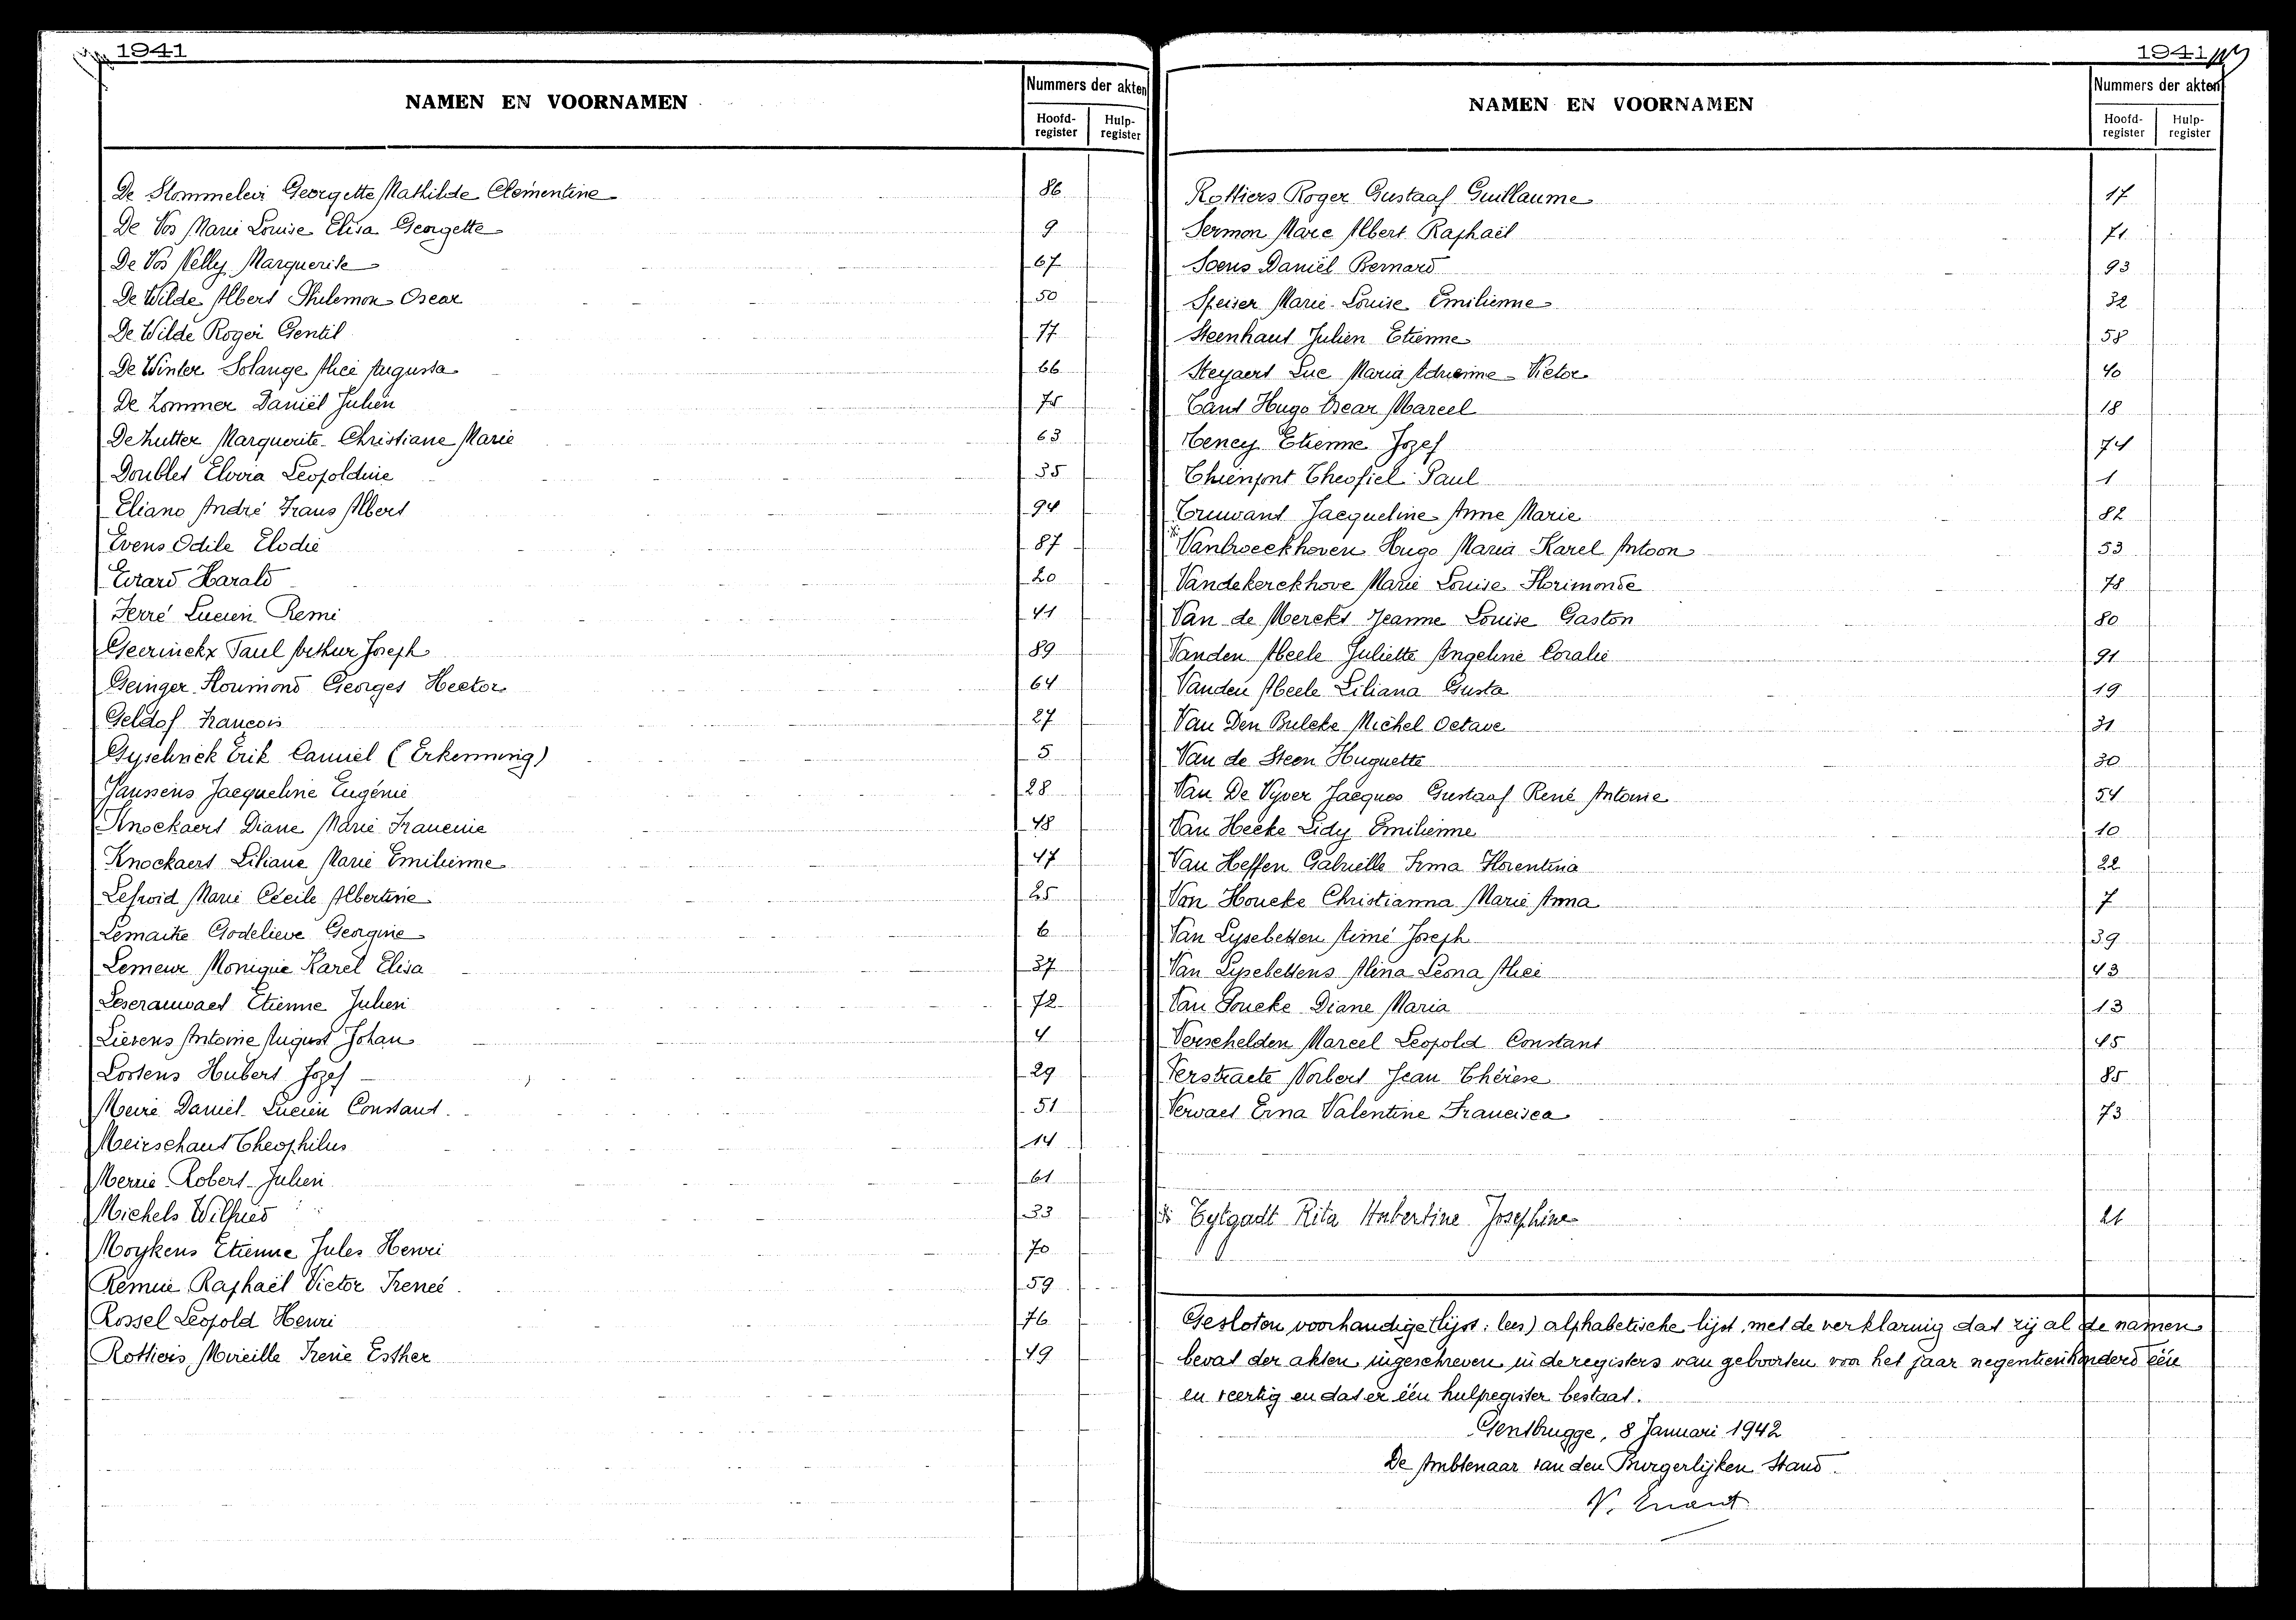 1941
NAMEN EN VOORNAMEN
Nummers der akten
Hoofd-register
Hulp-register
De Stommeleir Georgette Mathilde Clementine 86
De Vos Marie Louise Elisa Georgette 9
De Vos Nelly Marguerite 67
De Wilde Albert Philemon Oscar 50
De Wilde Roger Gentil 77
De Winter Solange Alice Augusta 66
De Zommer Daniël Julien 75
De Zutter Marguerite Christiane Marie 63
Doublet Elvria Leopoldine 35
Eliano André Frans Albert 94
Evens Odile Elodie 87
Evrard Harald 20
Ferré Lucien Remi 41
Geerinckx Paul Arthur Joseph 89
Geinger Florimond Georges Hector 64
Geldof François 27
Gyselinck Erik Camiel (Erkenning) 5
Janssens Jacqueline Eugénie 28
Knockaert Diane Marie Francine 48
Knockaert Liliane Marie Emilienne 47
Marie Cécile Albertine 25
Lemaitre Godelieve Georgine 6
Lemeur Monique Karel Elisa 37
Leserauwaet Etienne Julien 72
Lievens Antoine August Johan 4
Lostens Hubert Jozef 29
Meire Daniel Lucien Constant 51
Meirschaut Theophilus 14
Merrie Robert Julien 61
Michels Wilfried 33
Moykens Etienne Jules Henri 70
Remue Raphaël Victor Irenée 59
Rossel Leopold Henri 76
Rottiers Mireille Irene Esther 49
1941
NAMEN EN VOORNAMEN
Nummers der akten
Hoofd-register
Hulp-register
Rottiers Roger Gustaaf Guillaume 17
Sermon Marc Albert Raphaël 71
Soens Daniël Bernard 93
Speiser Marie-Louise Emilienne 32
Steenhaut Julien Etienne 58
Steyaert Luc Maria Adrienne Victor 40
Tant Hugo Oscar Marcel 18
Teney Etienne Jozef 74
Thienpont Theofiel Paul 1
Truwant Jacqueline Anne Marie 82
Vanbroeckhoven Hugo Maria Karel Antoon 53
Vandekerckhove Marie Louise Florimonde 78
Van de Merckt Jeanne Louise Gaston 80
Vanden Abeele Juliette Angeline Coralie 91
Vanden Abeele Liliana Gusta 19
Van Den Bulcke Michel Octave 31
Van de Steen Huguette 30
Van De Vyver Jacques Gustaaf René Antoine 54
Van Hecke Lidy Emilienne 10
Van Heffen Gabrielle Irma Florentina 22
Van Houcke Christianna Marie Anna 7
Van Lysebetten Aimé Joseph 39
Van Lysebettens Alina Leona Alice 43
Van Poucke Diane Maria 13
Verschelden Marcel Leopold Constant 45
Verstraete Norbert Jean Thérèse 85
Vervaet Erna Valentine Francisca 73
Eylgadt Rita Hubertine Josephine 21
Gesloten voorhandige (lijst: lees) alphabetische lijst, met de verklaring dat zij al de namen
bevat der akten ingeschreven in de registers van geboorten voor het jaar negentienhonderd één
en veertig en dat er één hulpregister bestaat.
Gentbrugge, 8 Januari 1942
De Ambtenaar van den Burgerlijken Stand.